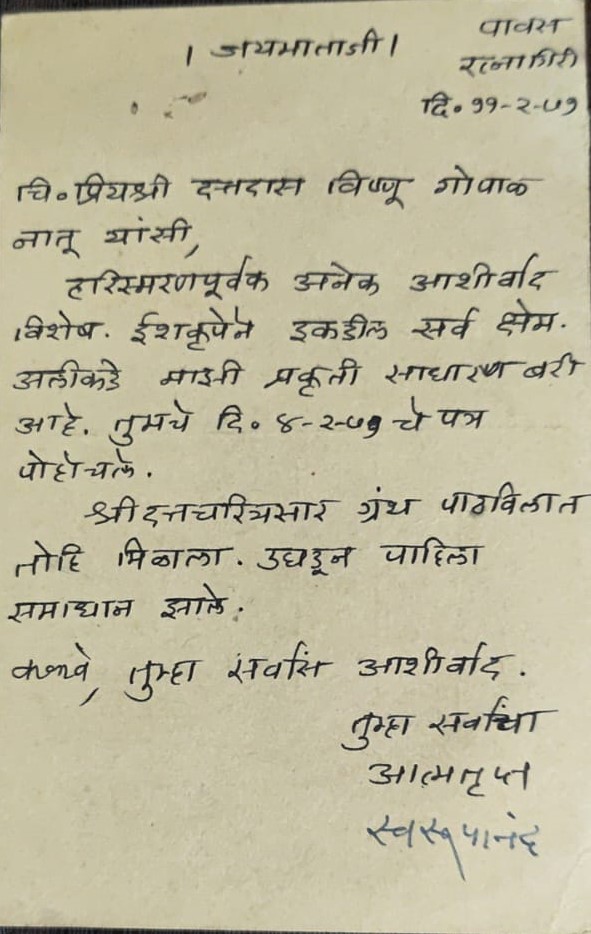 पावस
। जयमाताजी।
रत्नागिरी
दि. ११-२-७१
चि. प्रियश्री दत्तदास विष्णू गोपाळ
नातू यांसी,
हरिस्मरणपूर्वक अनेक आशीर्वाद
विशेष. ईशकृपेने इकडील सर्व क्षेम.
अलीकडे माझी प्रकृती साधारण बरी
आहे. तुमचे दि. ४-२-७१ चे पत्र
पोहोचले.
श्रीदत्तचरित्रसार ग्रंथ पाठविलात
तोहि मिळाला. उघडून पाहिला
समाधान झाले.
कळावे, तुम्हा सर्वांस आशीर्वाद.
तुम्हा सर्वांचा
आत्मतृप्त
स्वरूपानंद